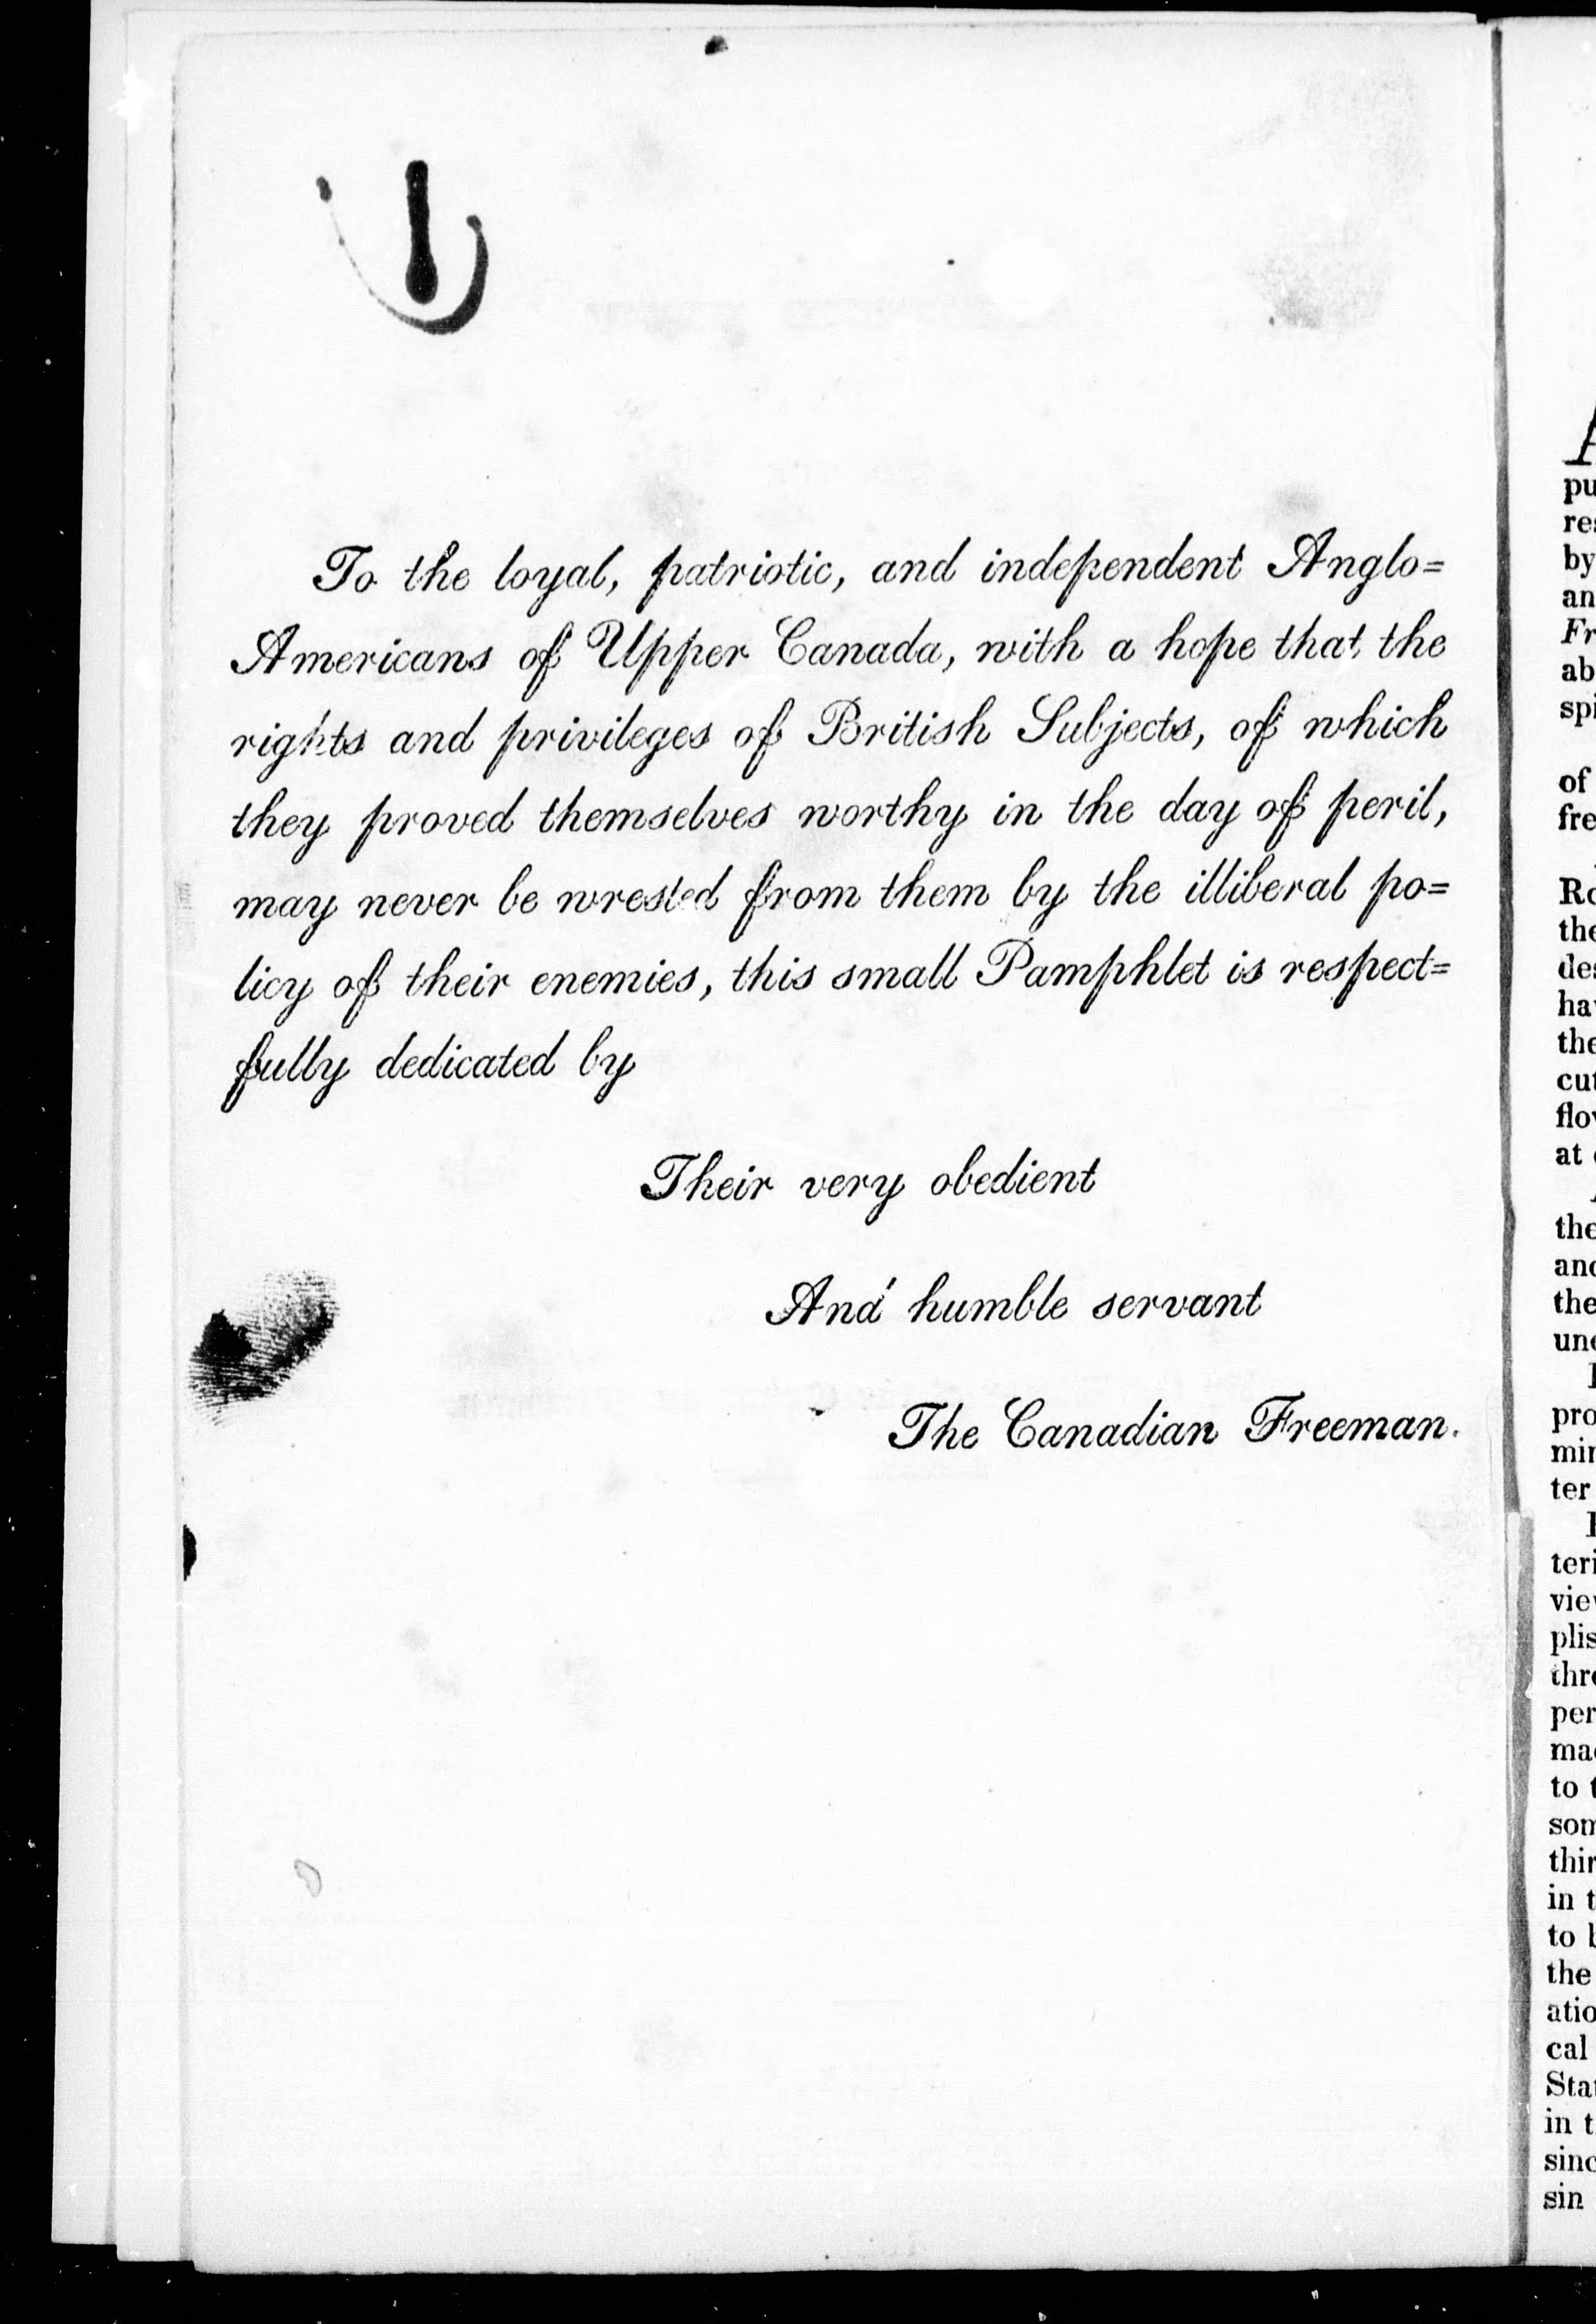 To the loyal, patriotic, and independent Anglo=
Americans of Upper Canada, with a hope that the
rights and privileges of British Subjects, of which
they proved themselves worthy in the day of peril,
may never be wrested from them by the illiberal po=
licy of their enemies, this small Pamphlet is respect=
fully dedicated by
Their very obedient
And humble servant
The Canadian Freeman.
pu
res
by
an
Fr
ab
spi
of
fre
Ro
the
des
hav
the
cut
flov
at
the
and
the
und
pro
min
ter
teri
view
plis
thro
per
mad
to t
som
thin
in t
to b
the
atio
cal
Stat
in t
sinc
sin